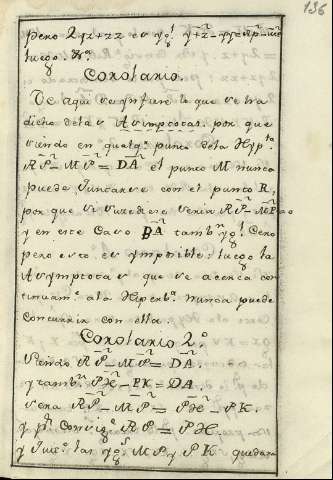 136
pero 2yz+zz es yg.l
luego. &a.
Corolario.
De aqui se infiere lo que se ha
dicho de las Asymptotas, por que
siendo en qualq.a punto de la Hyp.la
RP² - MP² = DA² el punto M nunca
puede juntarse con el punto R,
por que si sucediese seria RP² - MP² = 0
y en este caso DA tamb.n yg.l Cero
pero esto es ymposible: luego la
Asymptota es que se acerca con
tinuam.e a la Hiperb.a nunca puede
concurrir con ella.
Corolario 2.o
Siendo RP² - MP² = DA²,
y tamb.n PH² - PK² = DA²,
sera RP² - MP² = PH² - PK².
y p.r Consig.e RP = PH.
y quit.s las yg.s MP y PK quedara